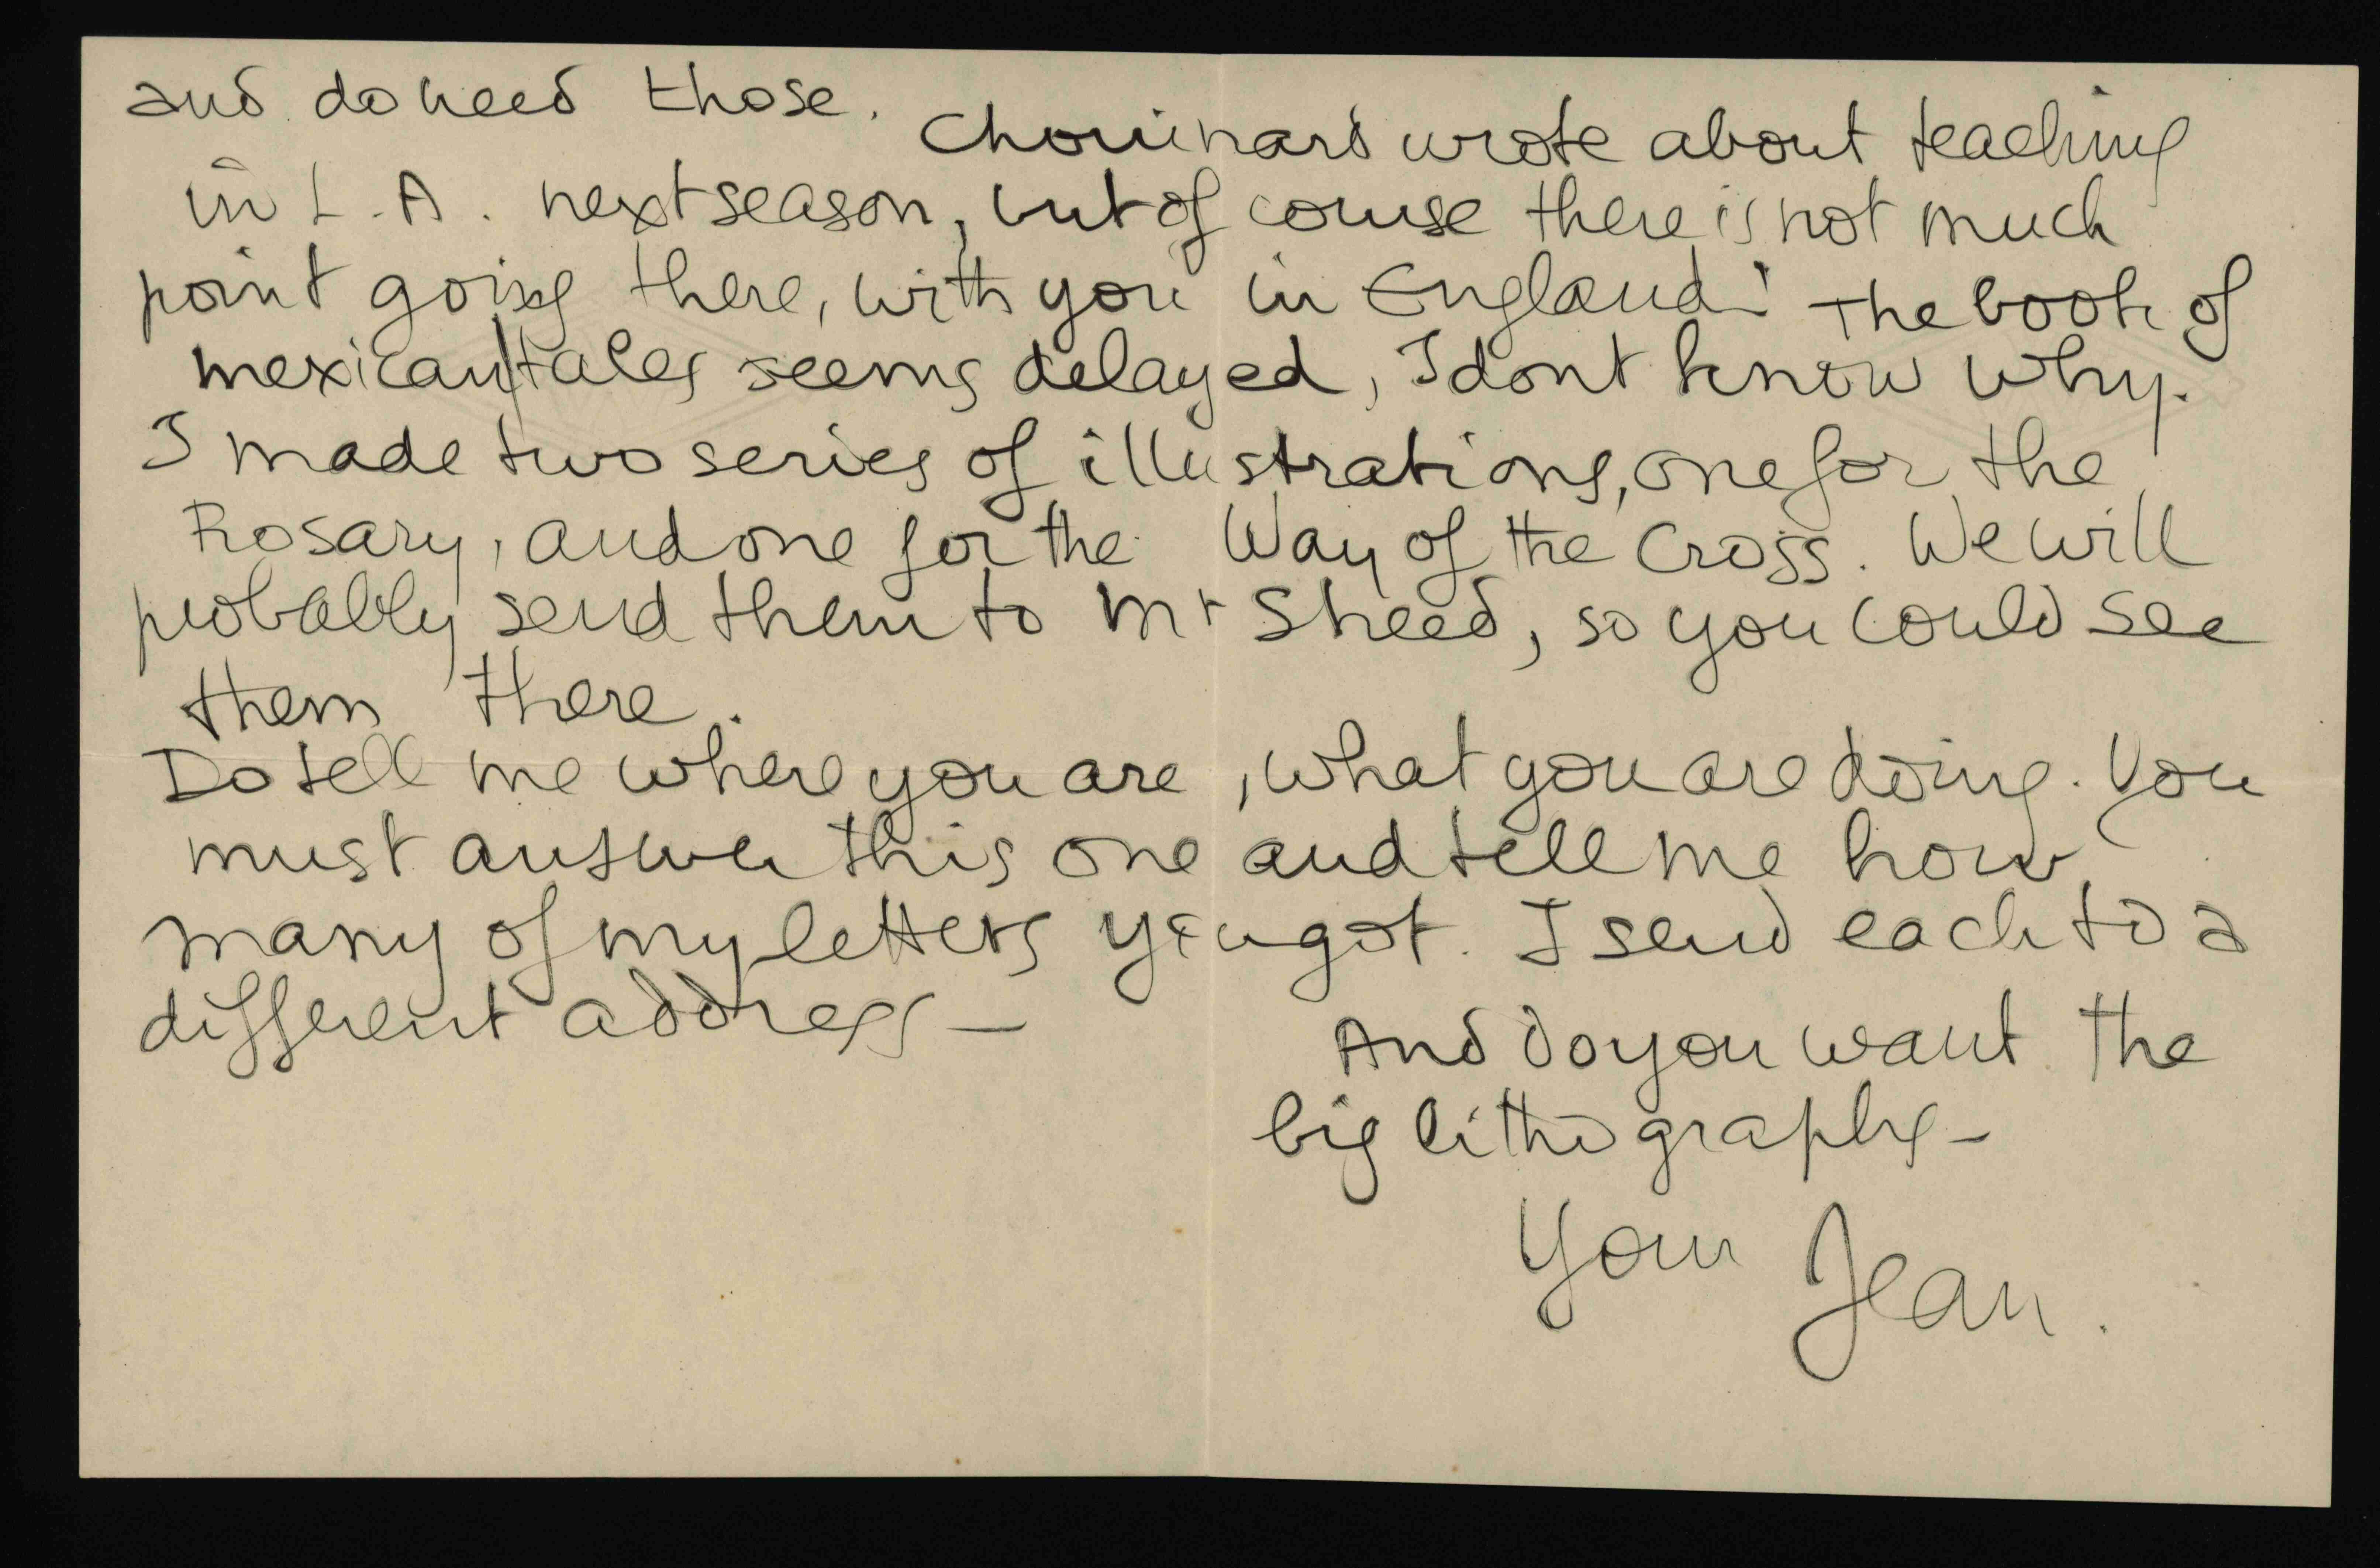 and do need those. Chouinard wrote about teaching
in L.A. next season, but of course there is not much
point going there, with you in England! The book of
mexican tales seems delayed, I dont know why.
I made two series of illustrations, one for the
Rosary, and one for the Way of the Cross. We will
probably send them to Mr Sheed, so you could see
them there.
Do tell me where you are, what you are doing. You
must answer this one and tell me how
many of my letters you got. I send each to a
different address —
And do you want the
big lithographs —
Your Jean.